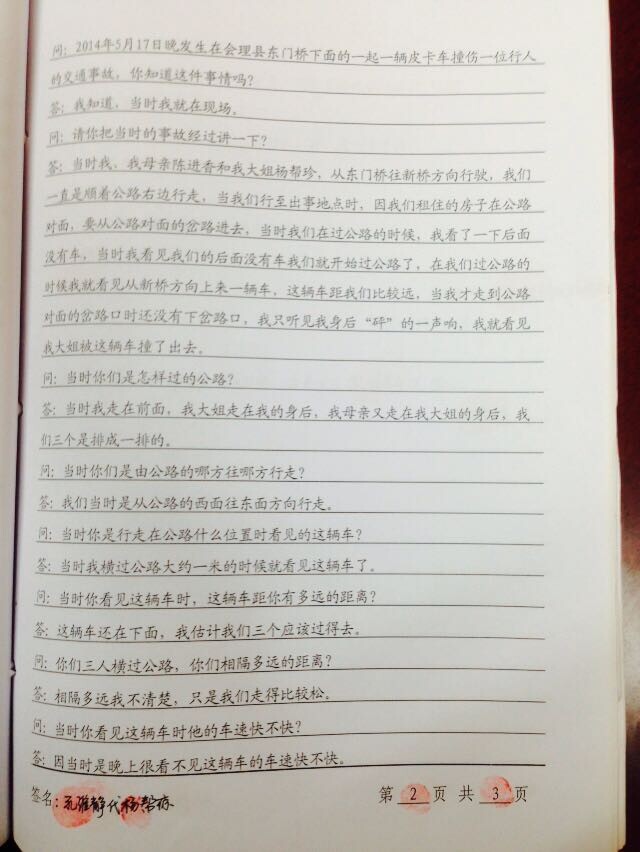 问：2014年5月17日晚发生在会理县东门桥下面的一起一辆皮卡车撞伤一位行人
的交通事故，你知道这件事情吗？
答：我知道，当时我就在现场。
问：请你把当时的事故经过讲一下？
答：当时我、我母亲陈进香和我大姐杨帮珍，从东门桥往新桥方向行驶，我们
一直是顺着公路右边行走，当我们行至出事地点时，因我们租住的房子在公路
对面，要从公路对面的岔路进去，当时我们在过公路的时候，我看了一下后面
没有车，当时我看见我们的后面没有车我们就开始过公路了，在我们过公路的
时候我就看见从新桥方向上来一辆车，这辆车距我们比较远，当我才走到公路
对面的岔路口时还没有下岔路口，我只听见我身后“砰”的一声响，我就看见
我大姐被这辆车撞了出去。
问：当时你们是怎样过的公路？
答：当时我走在前面，我大姐走在我的身后，我母亲又走在我大姐的身后，我
们三个是排成一排的。
问：当时你们是由公路的哪方往哪方行走？
答：我们当时是从公路的西面往东面方向行走。
问：当时你是行走在公路什么位置时看见的这辆车？
答：当时我横过公路大约一米的时候就看见这辆车了。
问：当时你看见这辆车时，这辆车距你有多远的距离？
答：这辆车还在下面，我估计我们三个应该过得去。
问：你们三人横过公路，你们相隔多远的距离？
答：相隔多远我不清楚，只是我们走得比较松。
问：当时你看见这辆车时他的车速快不快？
答：因当时是晚上很看不见这辆车的车速快不快。
签名：雅静代杨帮 第 2 页 共 3 页